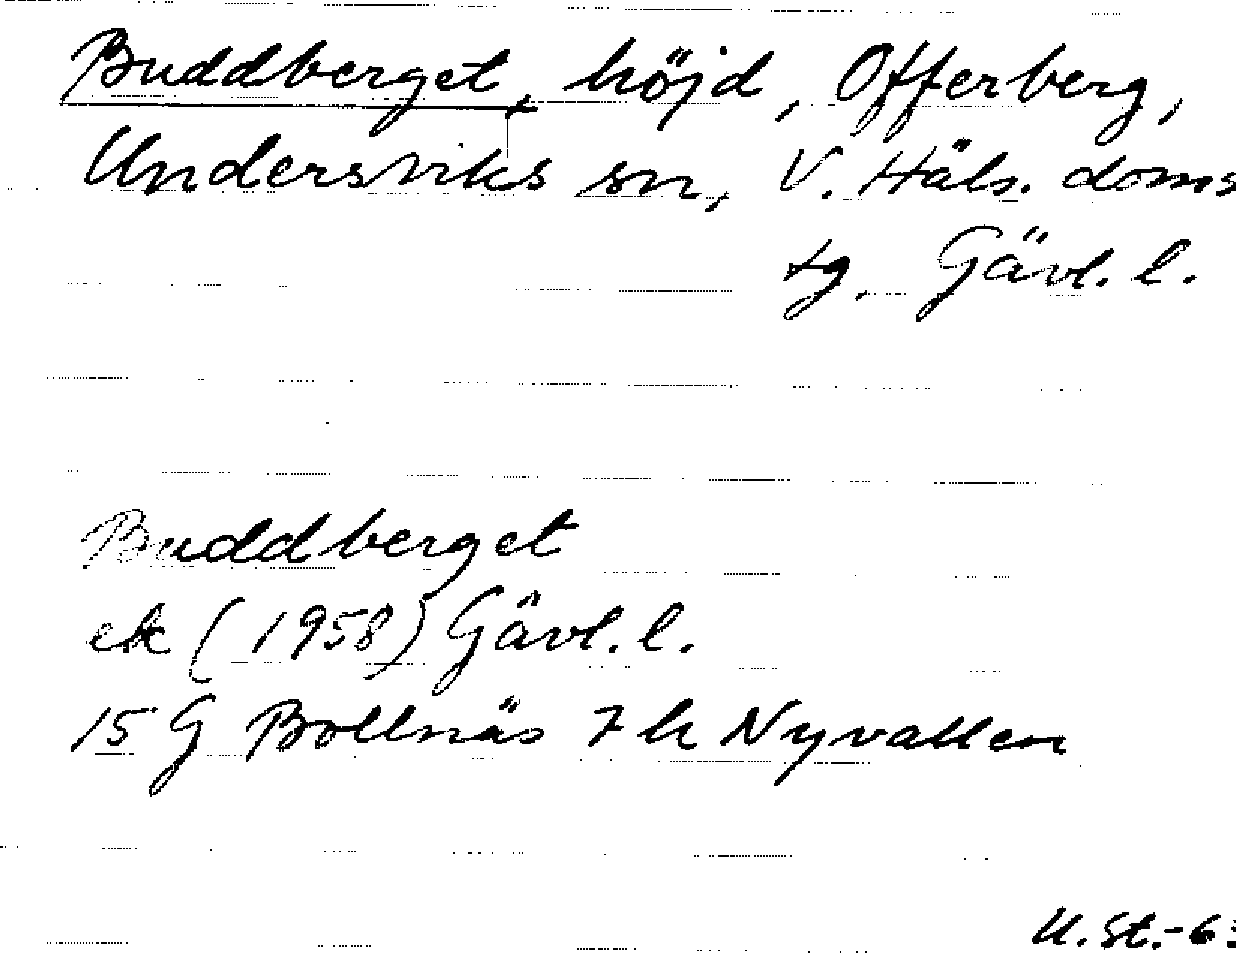 Buddberget, höjd, Offerberg,
Undersviks sn, V. Häls. doms
tg. Gävl. l.
Buddberget
ek (1958) Gävl. l.
15 G Bollnäs 7 h Nyvallen
U. St.-6